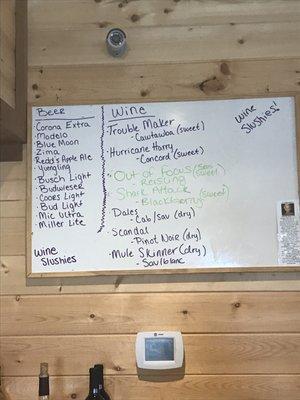 Beer
Corona Extra
Modelo
Blue Moon
Zima
Redd's Apple Ale
Yuengling
Busch Light
Budweiser
Coors Light
Bud Light
Mic Ultra
Miller Lite
Wine
Slushies
Wine
Trouble Maker
- Cautawba (sweet)
Hurricane Harry
- Concord (sweet)
Out of Focus (Semi sweet)
- Reisling
Shark Attack (sweet)
- Blackberry
Dales
- Cab/Sav (dry)
Scandal
- Pinot Noir (dry)
Mule Skinner (dry)
- Sav/blanc
Wine
Slushies!